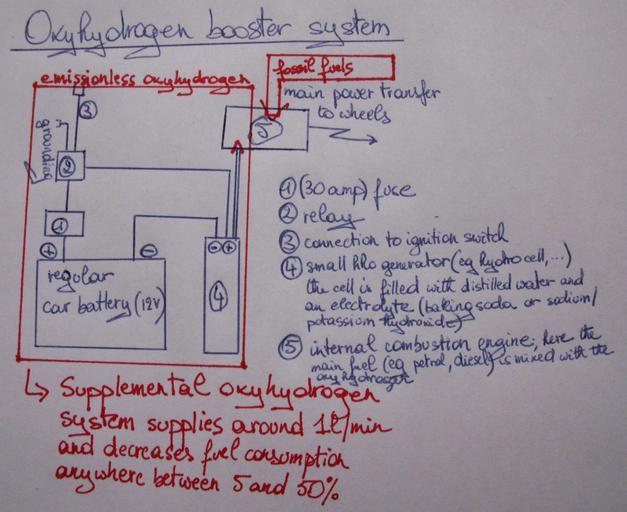 Oxyhydrogen booster system
emissionless oxyhydrogen
fossil fuels
main power transfer
to wheels
grounding
3
2
1
5
+
-
- +
4
regular
car battery (12V)
① (30 amp) fuce
② relay
③ connection to ignition switch
④ small HHO generator (eg hydrocell,...)
the cell is filled with distilled water and
an electrolyte (baking soda or sodium/
potassium hydroxide)
⑤ internal combustion engine; here the
main fuel (eg petrol, diesel) is mixed with the
oxyhydrogen
↳ Supplemental oxyhydrogen
system supplies around 1l/min
and decreases fuel consumption
anywhere between 5 and 50%